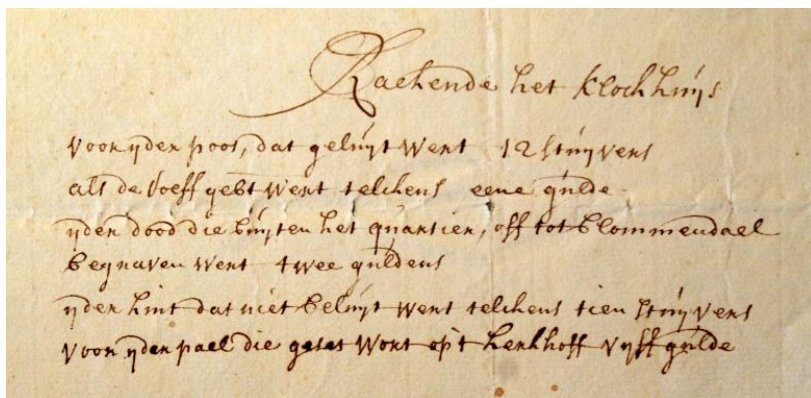 Rackende het klockhuijs
voor ijder poos, dat geluijt wert 12 stuijvers
als de boeff gebt wert telckens eene gulde
ijder dood die buijten het quartier, off tot blommendael
begraven wert twee guldens
ijder kint dat niet beluijt wert telckens tien stuijvers
voor ijder pael die geset wort op't kerkhoff vijff gulde